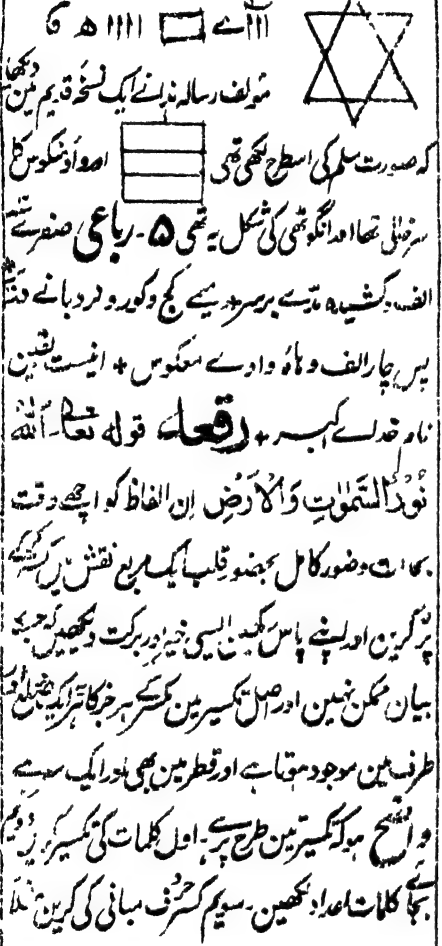 مولف رسالہ ہذا نے ایک نسخہ قدیم مین دیکھا
کہ صورت سلم کی اسطرح لکھی تھی اور واؤ منکوس کلج
سر خالی تھا اور انگوٹھی کی شکل یہ تھی ۵۔ رباعی صفرے سہ
الف کشیدہ مدے برسر + میمے کج و کور و نردبانے
پس چار الف و ہاء و واوے معکوس + اینست یقین
نام خداے اکبر + رقعہ قولہ تعالیٰ۔ اَللّٰهُ
نُوْرُ السَّمٰوٰتِ وَالْاَرْضِ اِن الفاظ کو اچھے وقت
وضو کامل بحضور قلب ایک مربع نقش مین
پُر کرین اور اپنے پاس رکھین ایسی خیر اور برکت دیکھین کہ
بیان ممکن نہین اور اصل تکسیر مین تکسیر کے ہر جزر کا
طرف مین موجود ہوتا ہے اور قطر مین بھی اور ایک
واضح ہو کہ تکسیر تین طرح پر ہے۔ اول کلمات کی تکسیر کرین دویم
بجاے کلمات اعداد لکھین۔ سویم کسر حرف مبانی کی کرین مثلاً